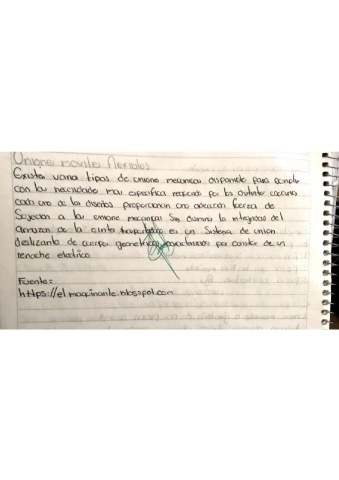 Uniones moviles flexibles
Existen varios tipos de uniones mecanicas disponible para cumplir
con las necesidades mas especifica por los distintos
cada uno de los diseños proporcionan una adecuada fuerza de
Sujecion a las uniones mecanicas Sin disminuir la integridad del
armazon de la cinta es un Sistema de union
deslizante de cuerpo geometrico por constar de un
remache electrico
Fuente:
https://elmaquinante.blogspot.com